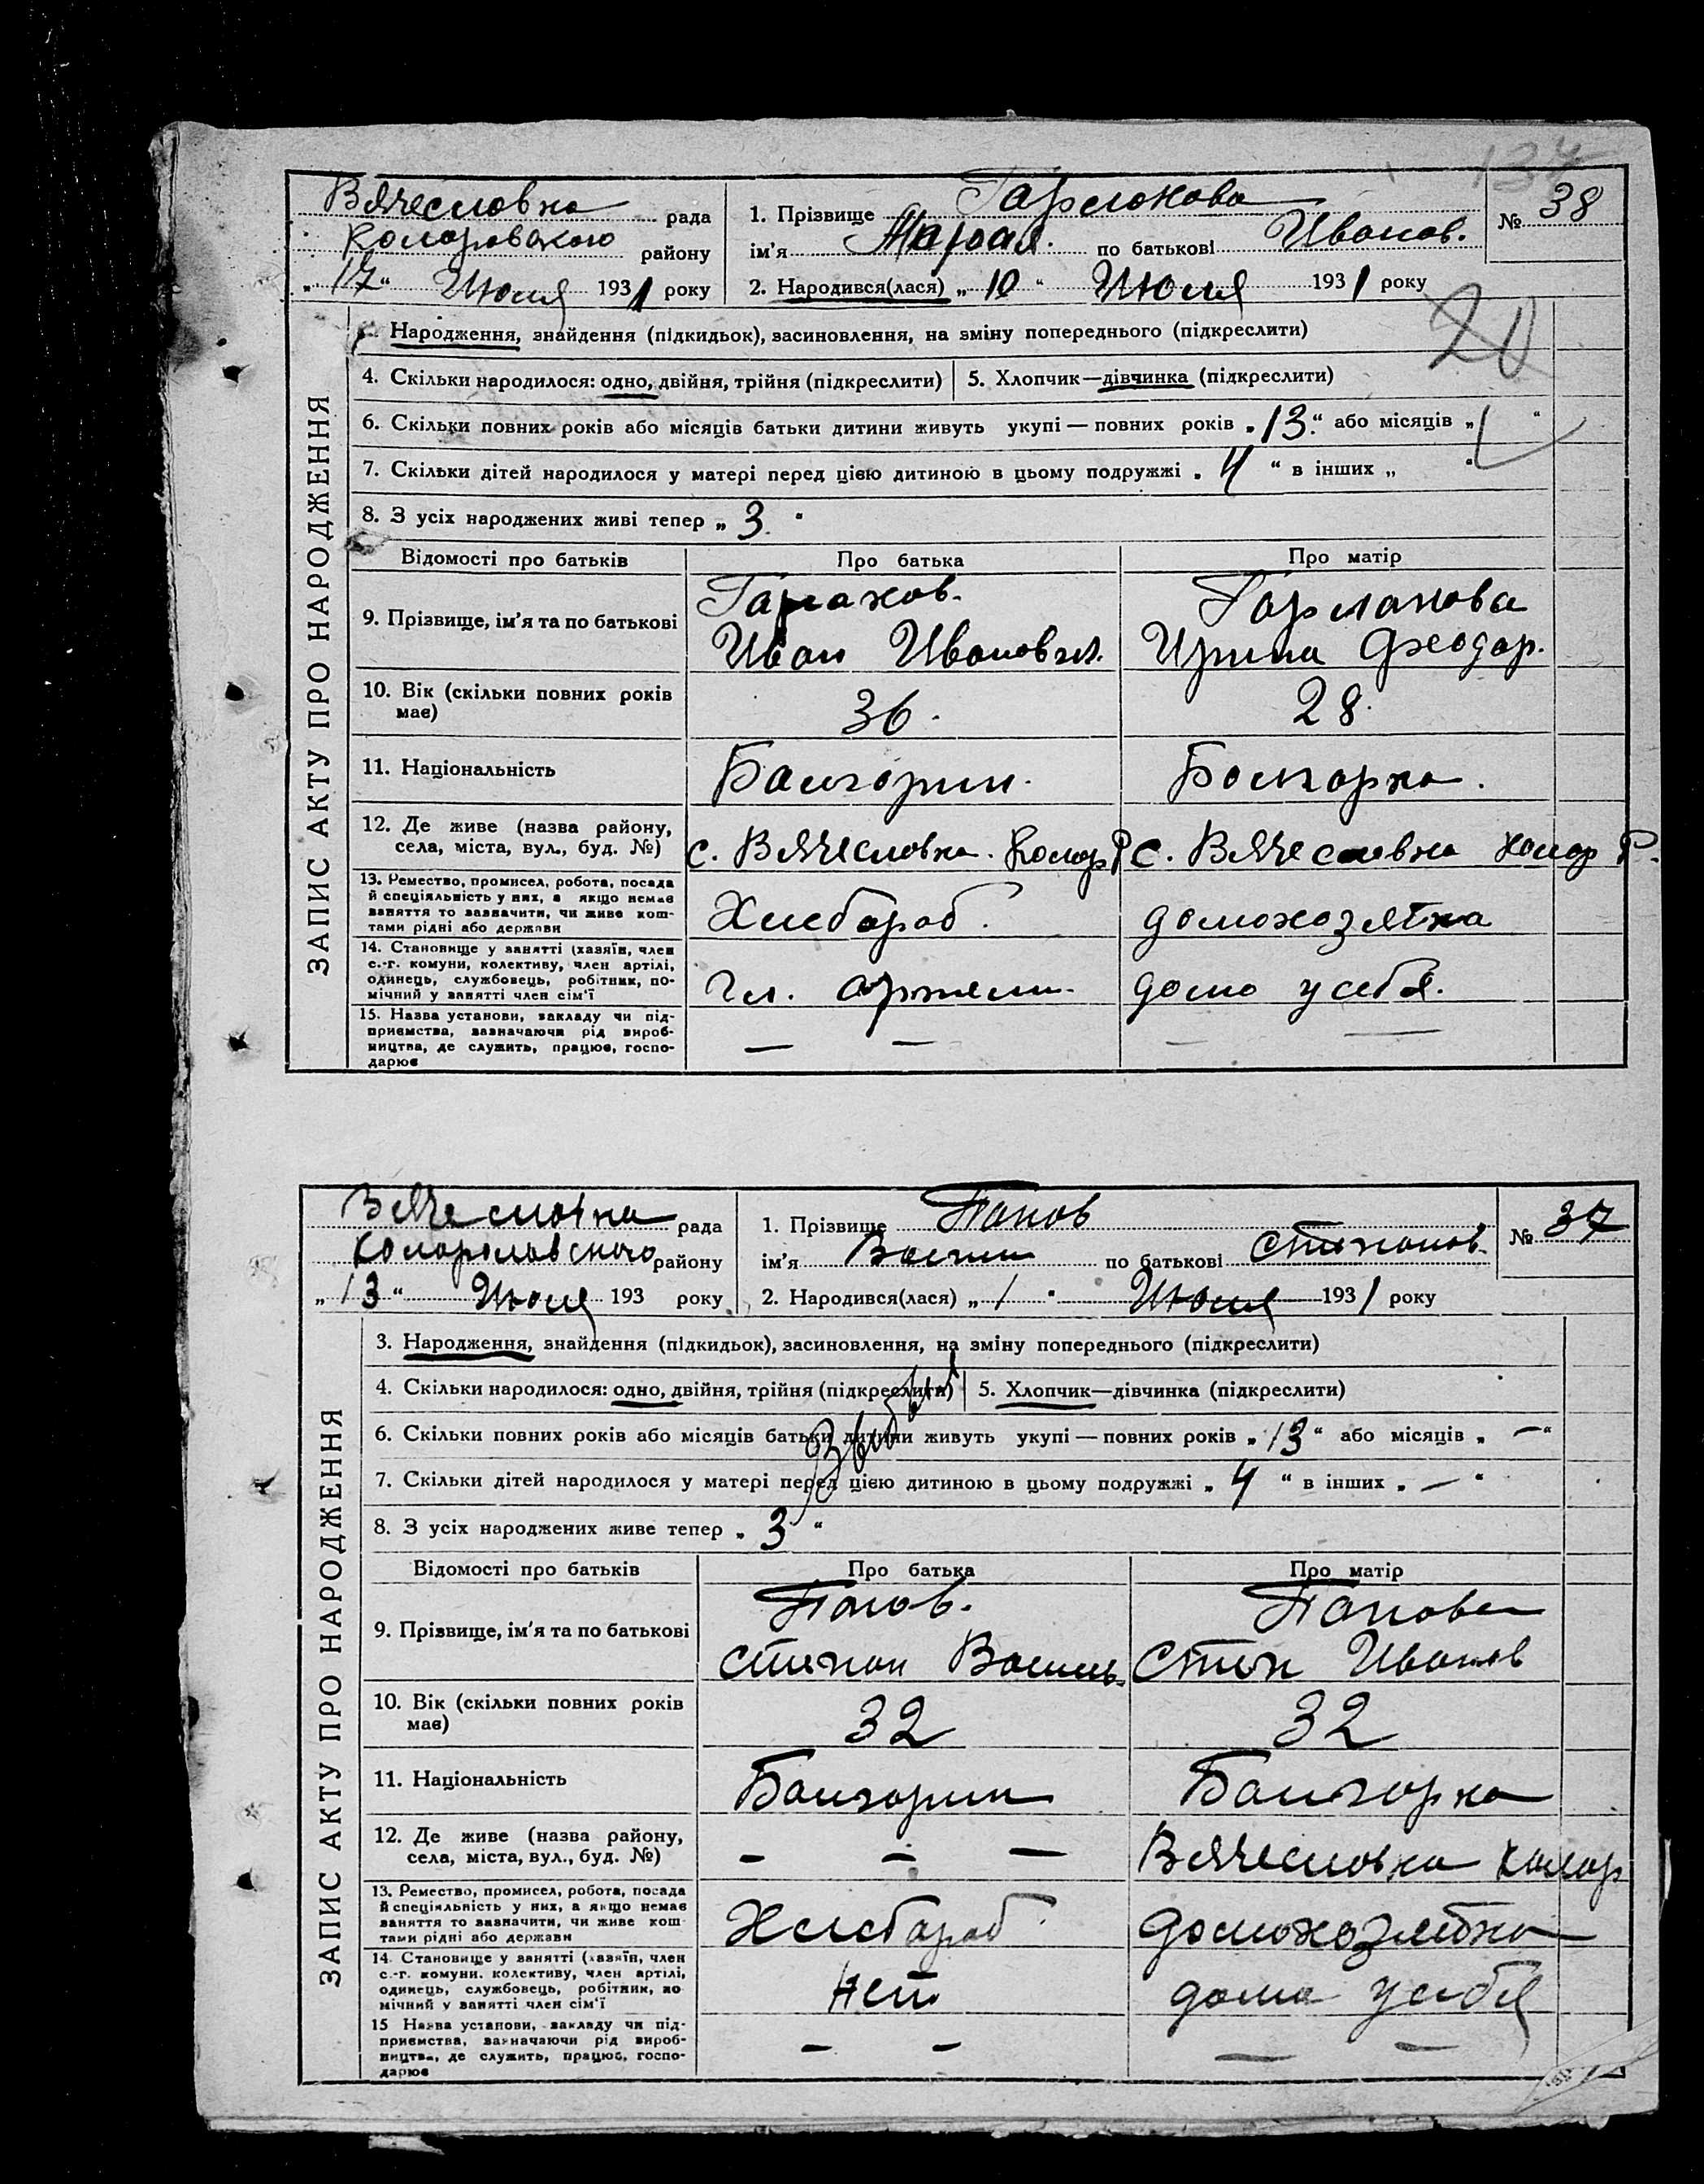 137
Вячесловка рада
Коларовского району
„17“ Июля 1931 року
1. Прізвище
ім’я Мария. по батькові Иванов.
№ 38
2. Народився(лася) „10“ Июля 1931 року
20
ЗАПИС АКТУ ПРО НАРОДЖЕННЯ
Народження, знайдення (підкидьок), засиновлення, на зміну попереднього (підкреслити)
4. Скільки народилося: одно, двійня, трійня (підкреслити)
5. Хлопчик—дівчинка (підкреслити)
6. Скільки повних років або місяців батьки дитини живуть укупі — повних років „13.“ або місяців „ “
7. Скільки дітей народилося у матері перед цією дитиною в цьому подружжі „4“ в інших „ “
8. З усіх народжених живі тепер „3.“
Відомості про батьків
Про батька
Про матір
9. Прізвище, ім’я та по батькові
Иван Иванович.
Ирина Феодор.
10. Вік (скільки повних років
має)
36.
28.
11. Національність
Болгарин.
Болгарка.
12. Де живе (назва району,
села, міста, вул., буд. №)
с. Вячесловка. Колар Р
с. Вячесловка Колар Р.
13. Ремество, промисел, робота, посада
й спеціяльність у них, а якщо немає
заняття то зазначити, чи живе кош-
тами рідні або держави
Хлебороб.
домохозяйка
14. Становище у занятті (хазяїн, член
с.-г. комуни, колективу, член артілі,
одинець, службовець, робітник, по-
мічний у занятті член сім’ї
Чл. артели.
дома у себя.
15. Назва установи, закладу чи під-
приємства, зазначаючи рід вироб-
ництва, де служить, працює, госпо-
дарює
— —
— —
Вячесловка рада
району
„13“ Июля 193 року
1. Прізвище Папов
ім’я Васили по батькові Степанов.
№ 37
2. Народився(лася) „1“ Июля 1931 року
ЗАПИС АКТУ ПРО НАРОДЖЕННЯ
3. Народження, знайдення (підкидьок), засиновлення, на зміну попереднього (підкреслити)
4. Скільки народилося: одно, двійня, трійня (підкреслити)
5. Хлопчик—дівчинка (підкреслити)
6. Скільки повних років або місяців батьки дитини живуть укупі — повних років „13“ або місяців „—“
7. Скільки дітей народилося у матері перед цією дитиною в цьому подружжі „4“ в інших „—“
8. З усіх народжених живе тепер „3“
Відомості про батьків
Про батька
Про матір
9. Прізвище, ім’я та по батькові
Папов.
Папова
Степан Василь.
Иванов
10. Вік (скільки повних років
має)
32
32
11. Національність
Болгарин
Болгарка
12. Де живе (назва району,
села, міста, вул., буд. №)
— — —
Вячесловка Колар
13. Ремество, промисел, робота, посада
й спеціяльність у них, а якщо немає
заняття то зазначити, чи живе кош-
тами рідні або держави
Хлебороб.
домохозяйка
14. Становище у занятті (хазяїн, член
с.-г. комуни, колективу, член артілі,
одинець, службовець, робітник, по
мічний у занятті член сім’ї
Нет
дома у себя
15 Назва установи, закладу чи під-
приємства, зазначаючи рід вироб-
ництва, де служить, працює, госпо-
дарює
— —
— —